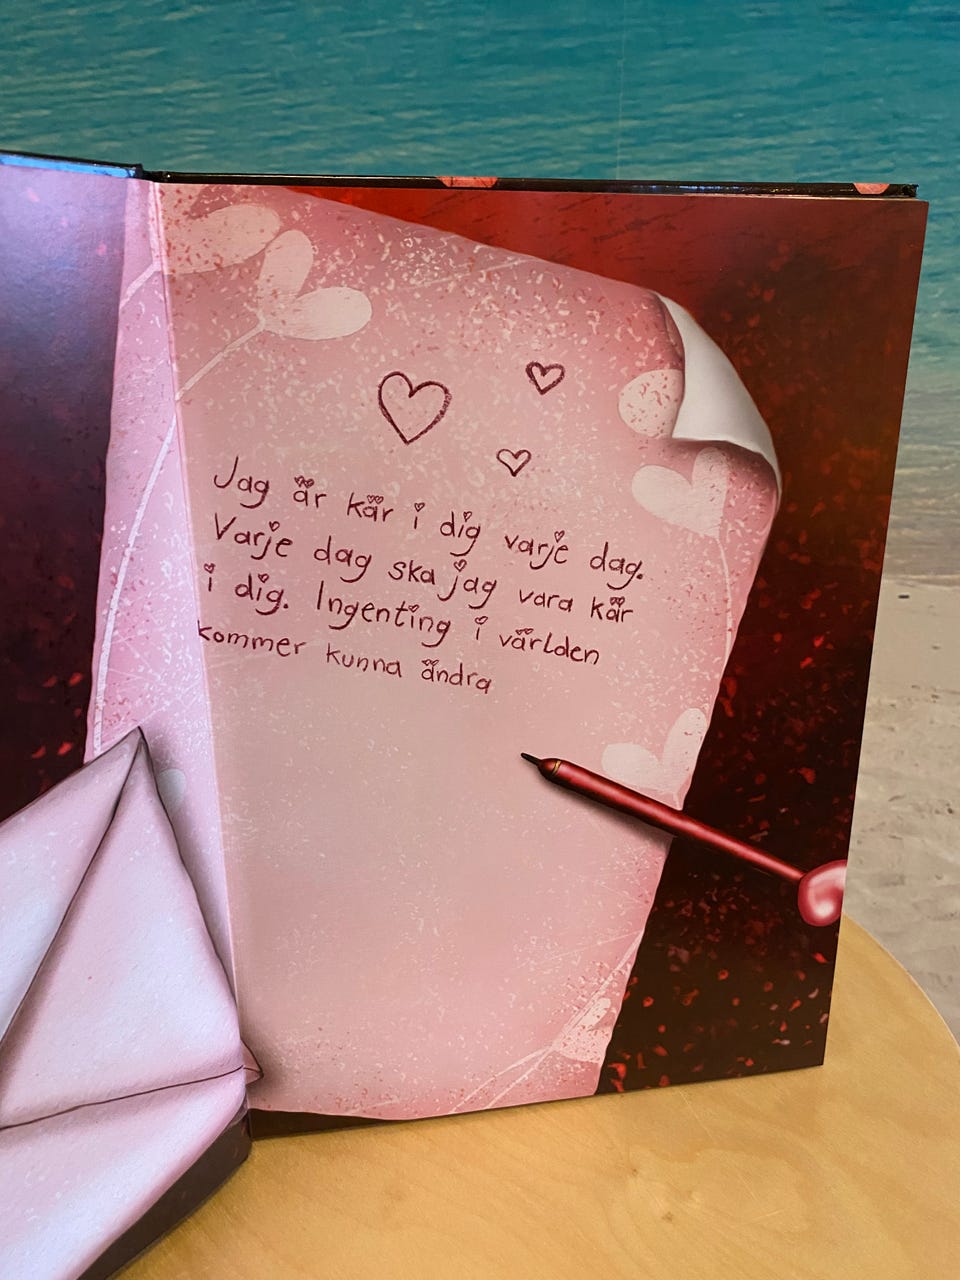 Jag är kär i dig varje dag.
Varje dag ska jag vara kär
i dig. Ingenting i världen
kommer kunna ändra